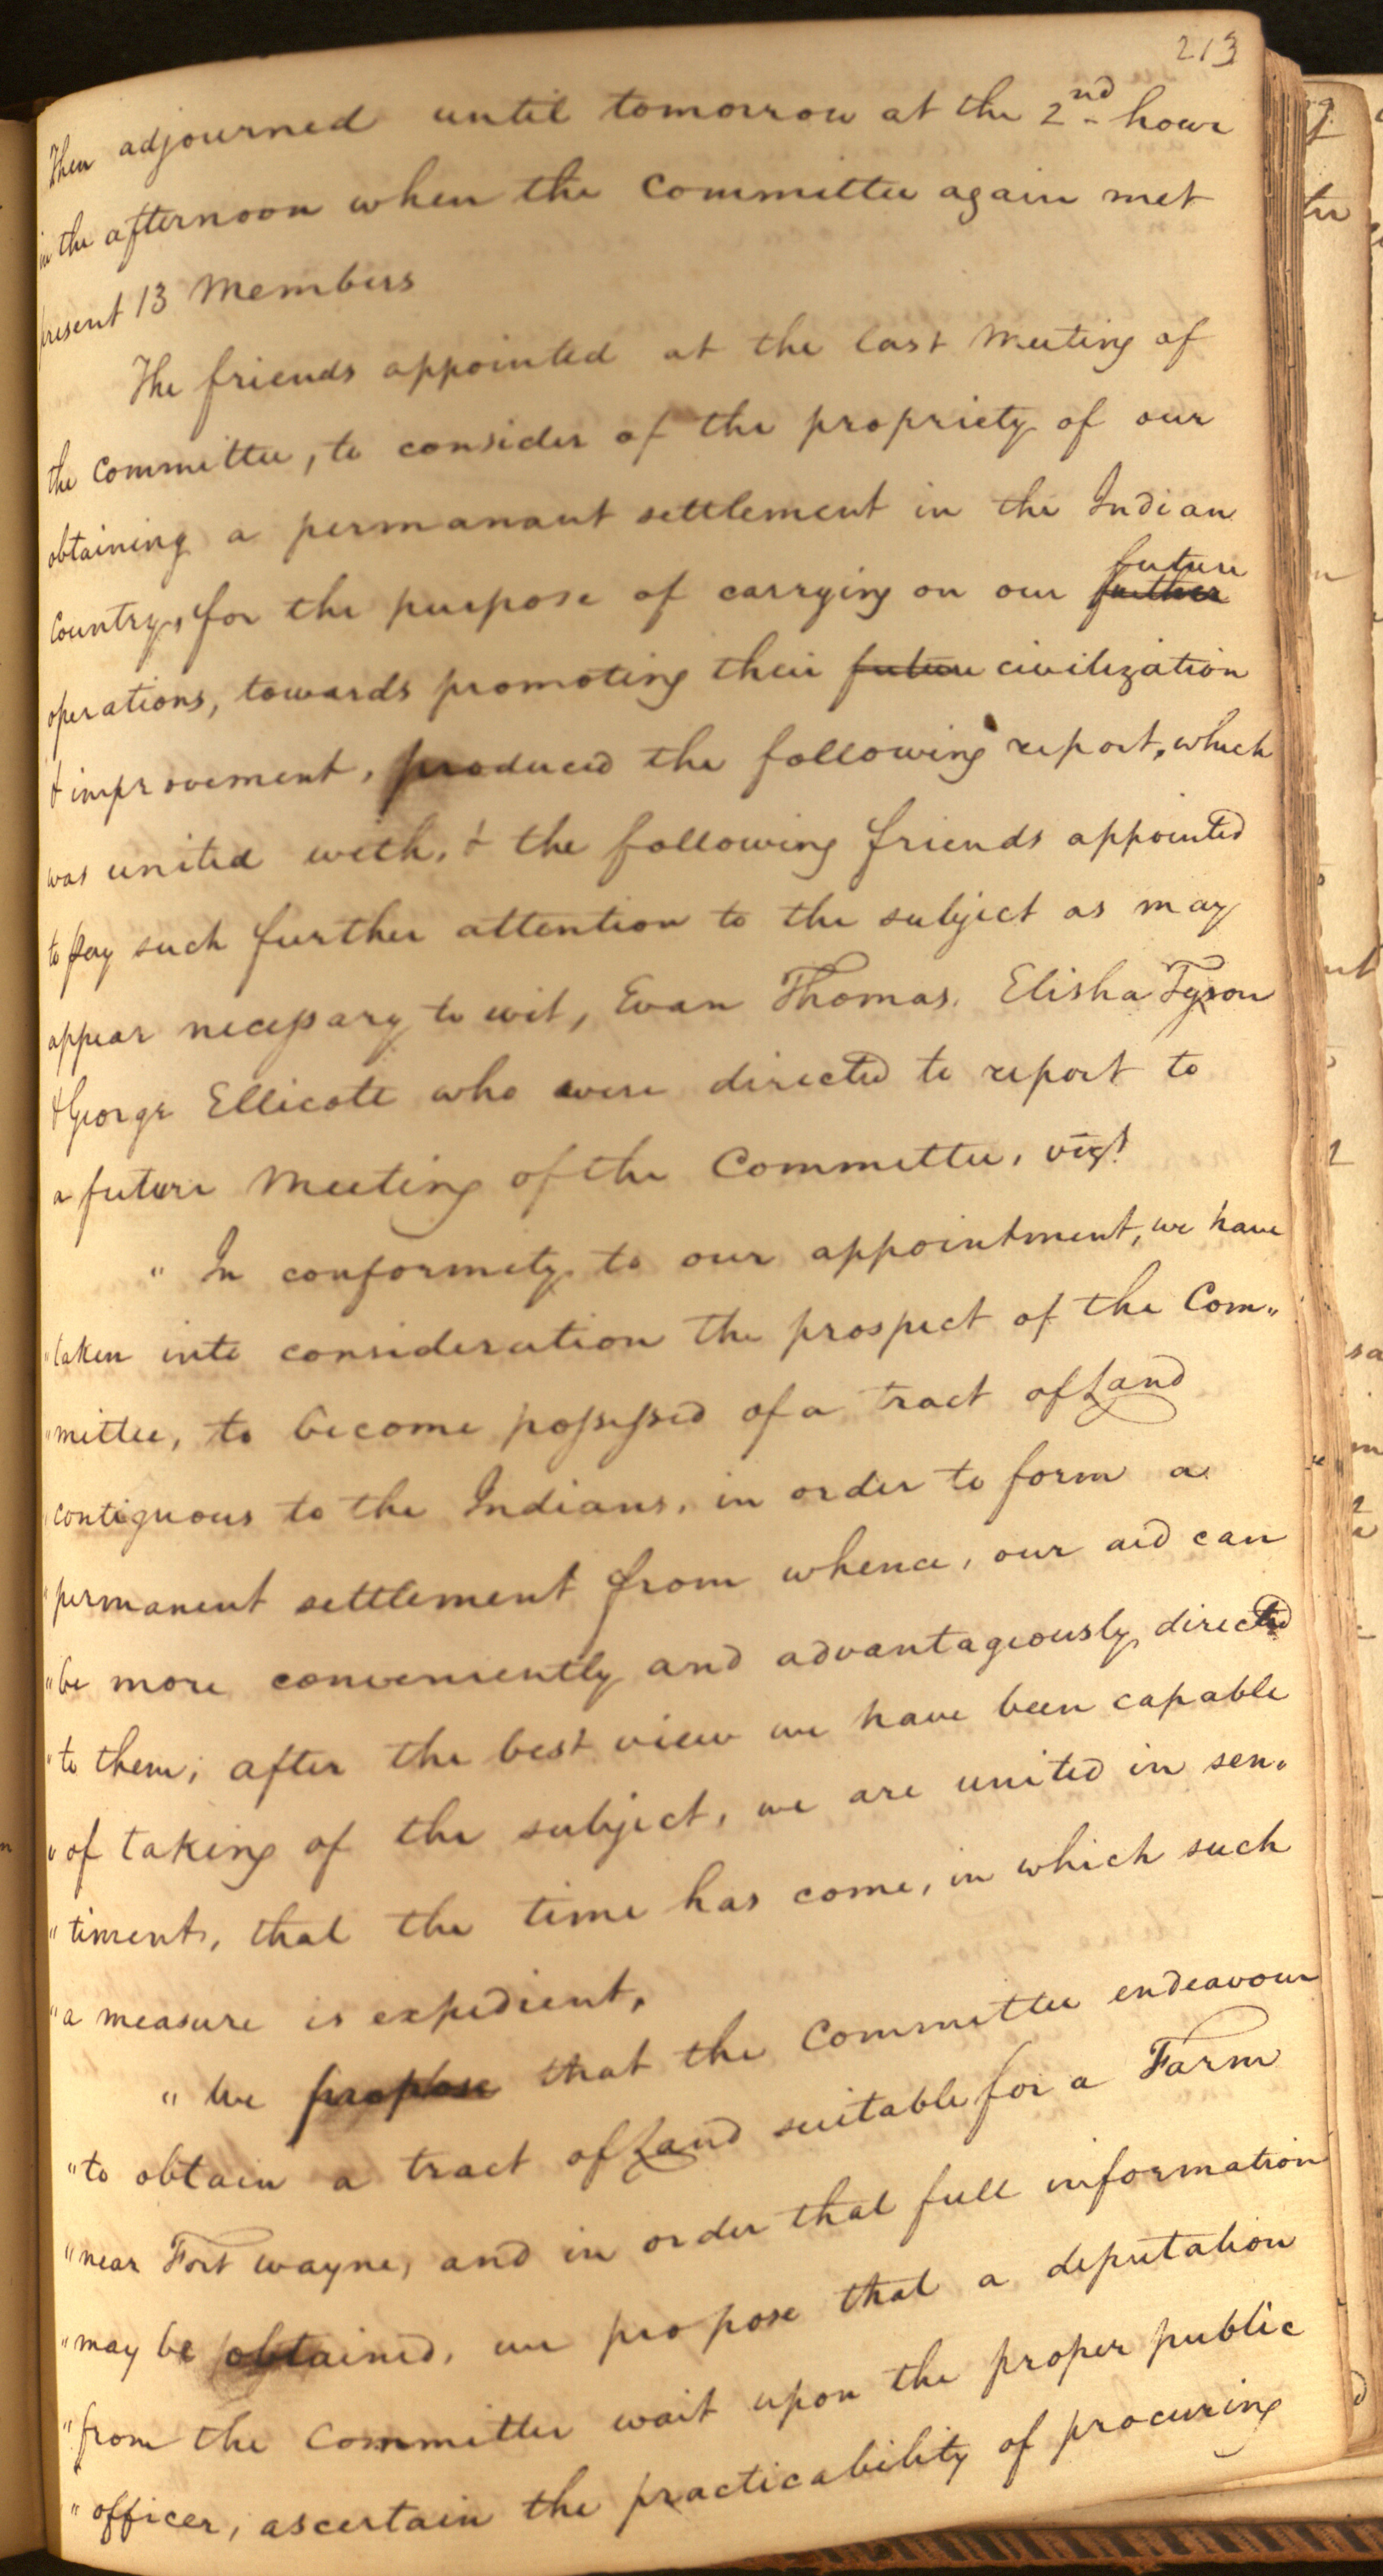 213
Then adjourned until tomorrow at the 2nd hour
in the afternoon when the Committee again met
present 13 Members
The friends appointed at the last Meeting of
the Committee, to consider of the propriety of our
obtaining a permanant settlement in the Indian
future
Country, for the purpose of carrying on our further
operations, towards promoting their future civilization
& improvement, produced the following report, which
was united with, & the following friends appointed
to pay such further attention to the subject as may
appear necessary to wit, Evan Thomas, Elisha Tyson
& George Ellicott who were directed to report to
a future Meeting of the Committee, vizt
" In conformity to our appointment, we have
"taken into consideration the prospect of the Com„
"mittee, to become possessed of a tract of Land
"contiguous to the Indians, in order to form a
"permanent settlement from whence, our aid can
"be more conveniently and advantageously directed
"to them; after the best view we have been capable
"of taking of the subject, we are united in sen„
"timent, that the time has come, in which such
"a measure is expedient,
" We propose that the Committee endeavour
"to obtain a tract of Land suitable for a Farm
"near Fort wayne, and in order that full information
"may be obtained, we propose that a deputation
"from the Committee wait upon the proper public
"officer, ascertain the practicability of procuring